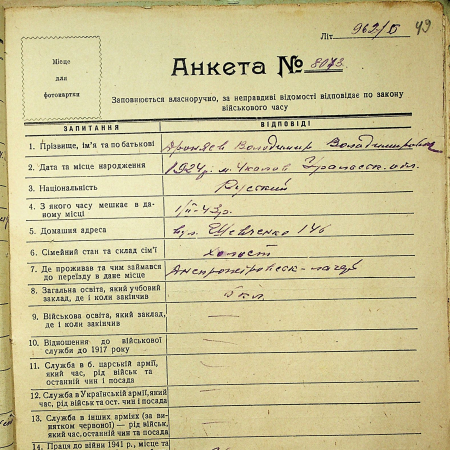 Літ 962/Б 49
Місце
для
фотокартки
Анкета № 8073
Заповнюється власноручно, за неправдиві відомості відповідає по закону
військового часу
ЗАПИТАННЯ ВІДПОВІДІ
1. Прізвище, ім'я та по батькові Володимир Володимирович
2. Дата та місце народження 1924р. м. Чкалов обл.
3. Національність Русский
4. З якого часу мешкає в да-
ному місці
5. Домашня адреса вул. Шевченко 14б
6. Сімейний стан та склад сім'ї холост
7. Де проживав та чим займався
до переїзду в дане місце Днепропетровск
8. Загальна освіта, який учбовий
заклад, де і коли закінчив кл.
9. Військова освіта, який заклад,
де і коли закінчив —
10. Відношення до військової
служби до 1917 року —
11. Служба в б. царській армії,
який час, рід військ та
останній чин і посада —
12. Служба в Українській армії, який
час, рід військ та ост. чин і посада —
13. Служба в інших арміях (за ви-
нятком червоної) — рід військ,
який час, останній чин та посада —
14. Праця до війни 1941 р., місце та